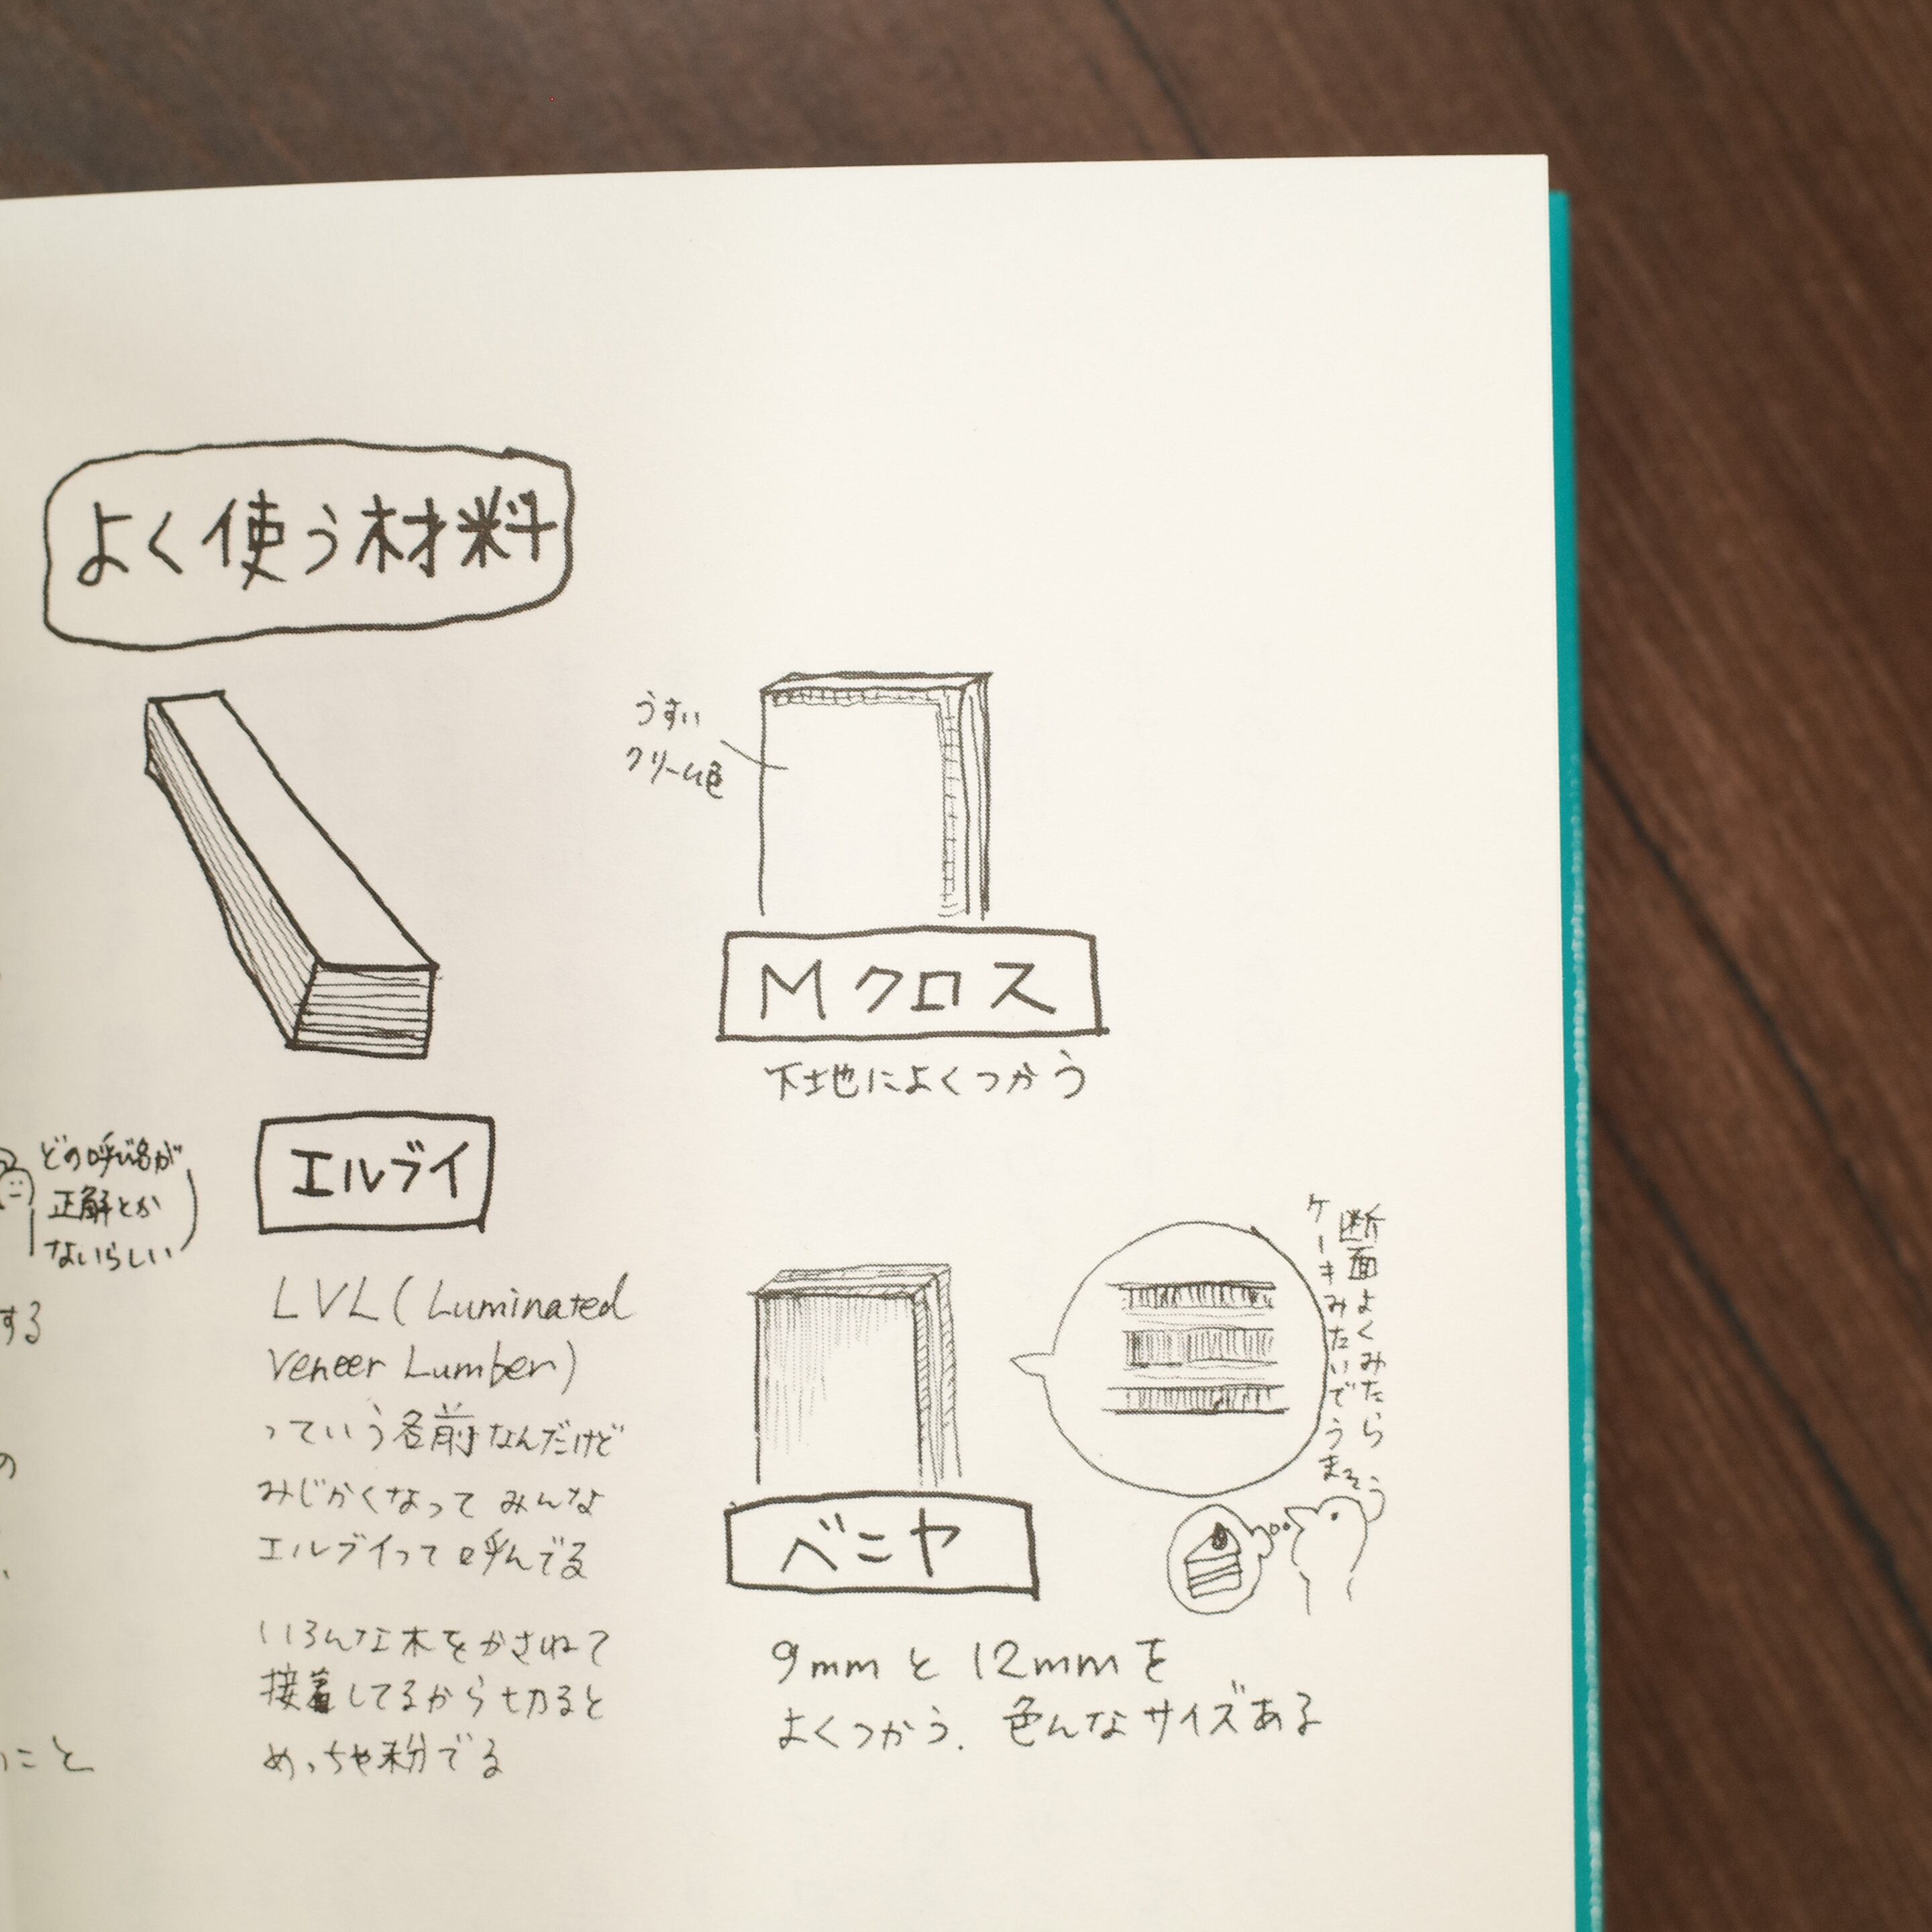 よく使う材料
どの呼び名が
正解とか
ないらしい
する
の
こと
エルブイ
LVL(Luminated
Veneer Lumber)
っていう名前なんだけど
みじかくなって みんな
エルブイって呼んでる
いろんな木をかさねて
接着してるから切ると
めっちゃ粉でる
うすい
クリーム色
Mクロス
下地によくつかう
断面よくみたら
ケーキみたいでうまそう
ベニヤ
9mmと12mmを
よくつかう. 色んなサイズある